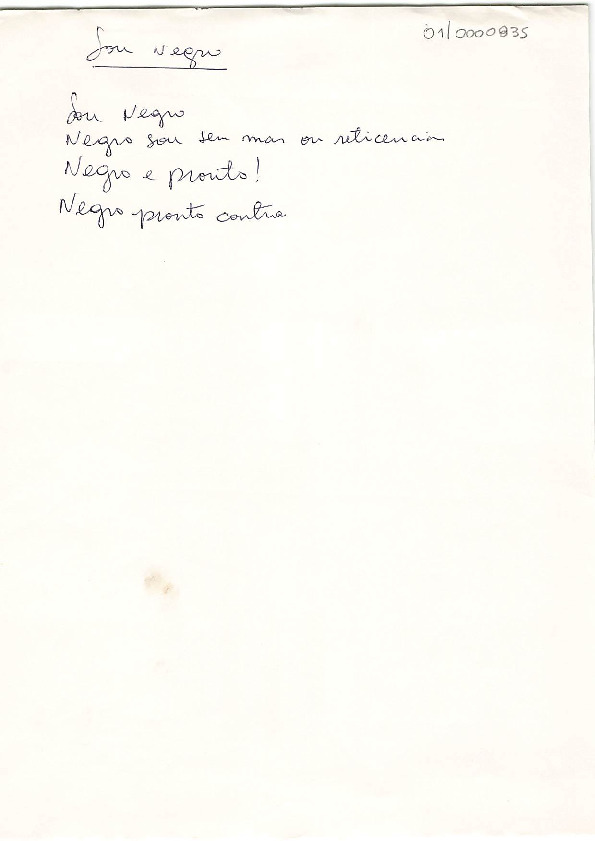 Sou Negro
01/0000835
Sou Negro
Negro sou sem mas ou reticencias
Negro e pronto!
Negro pronto contra